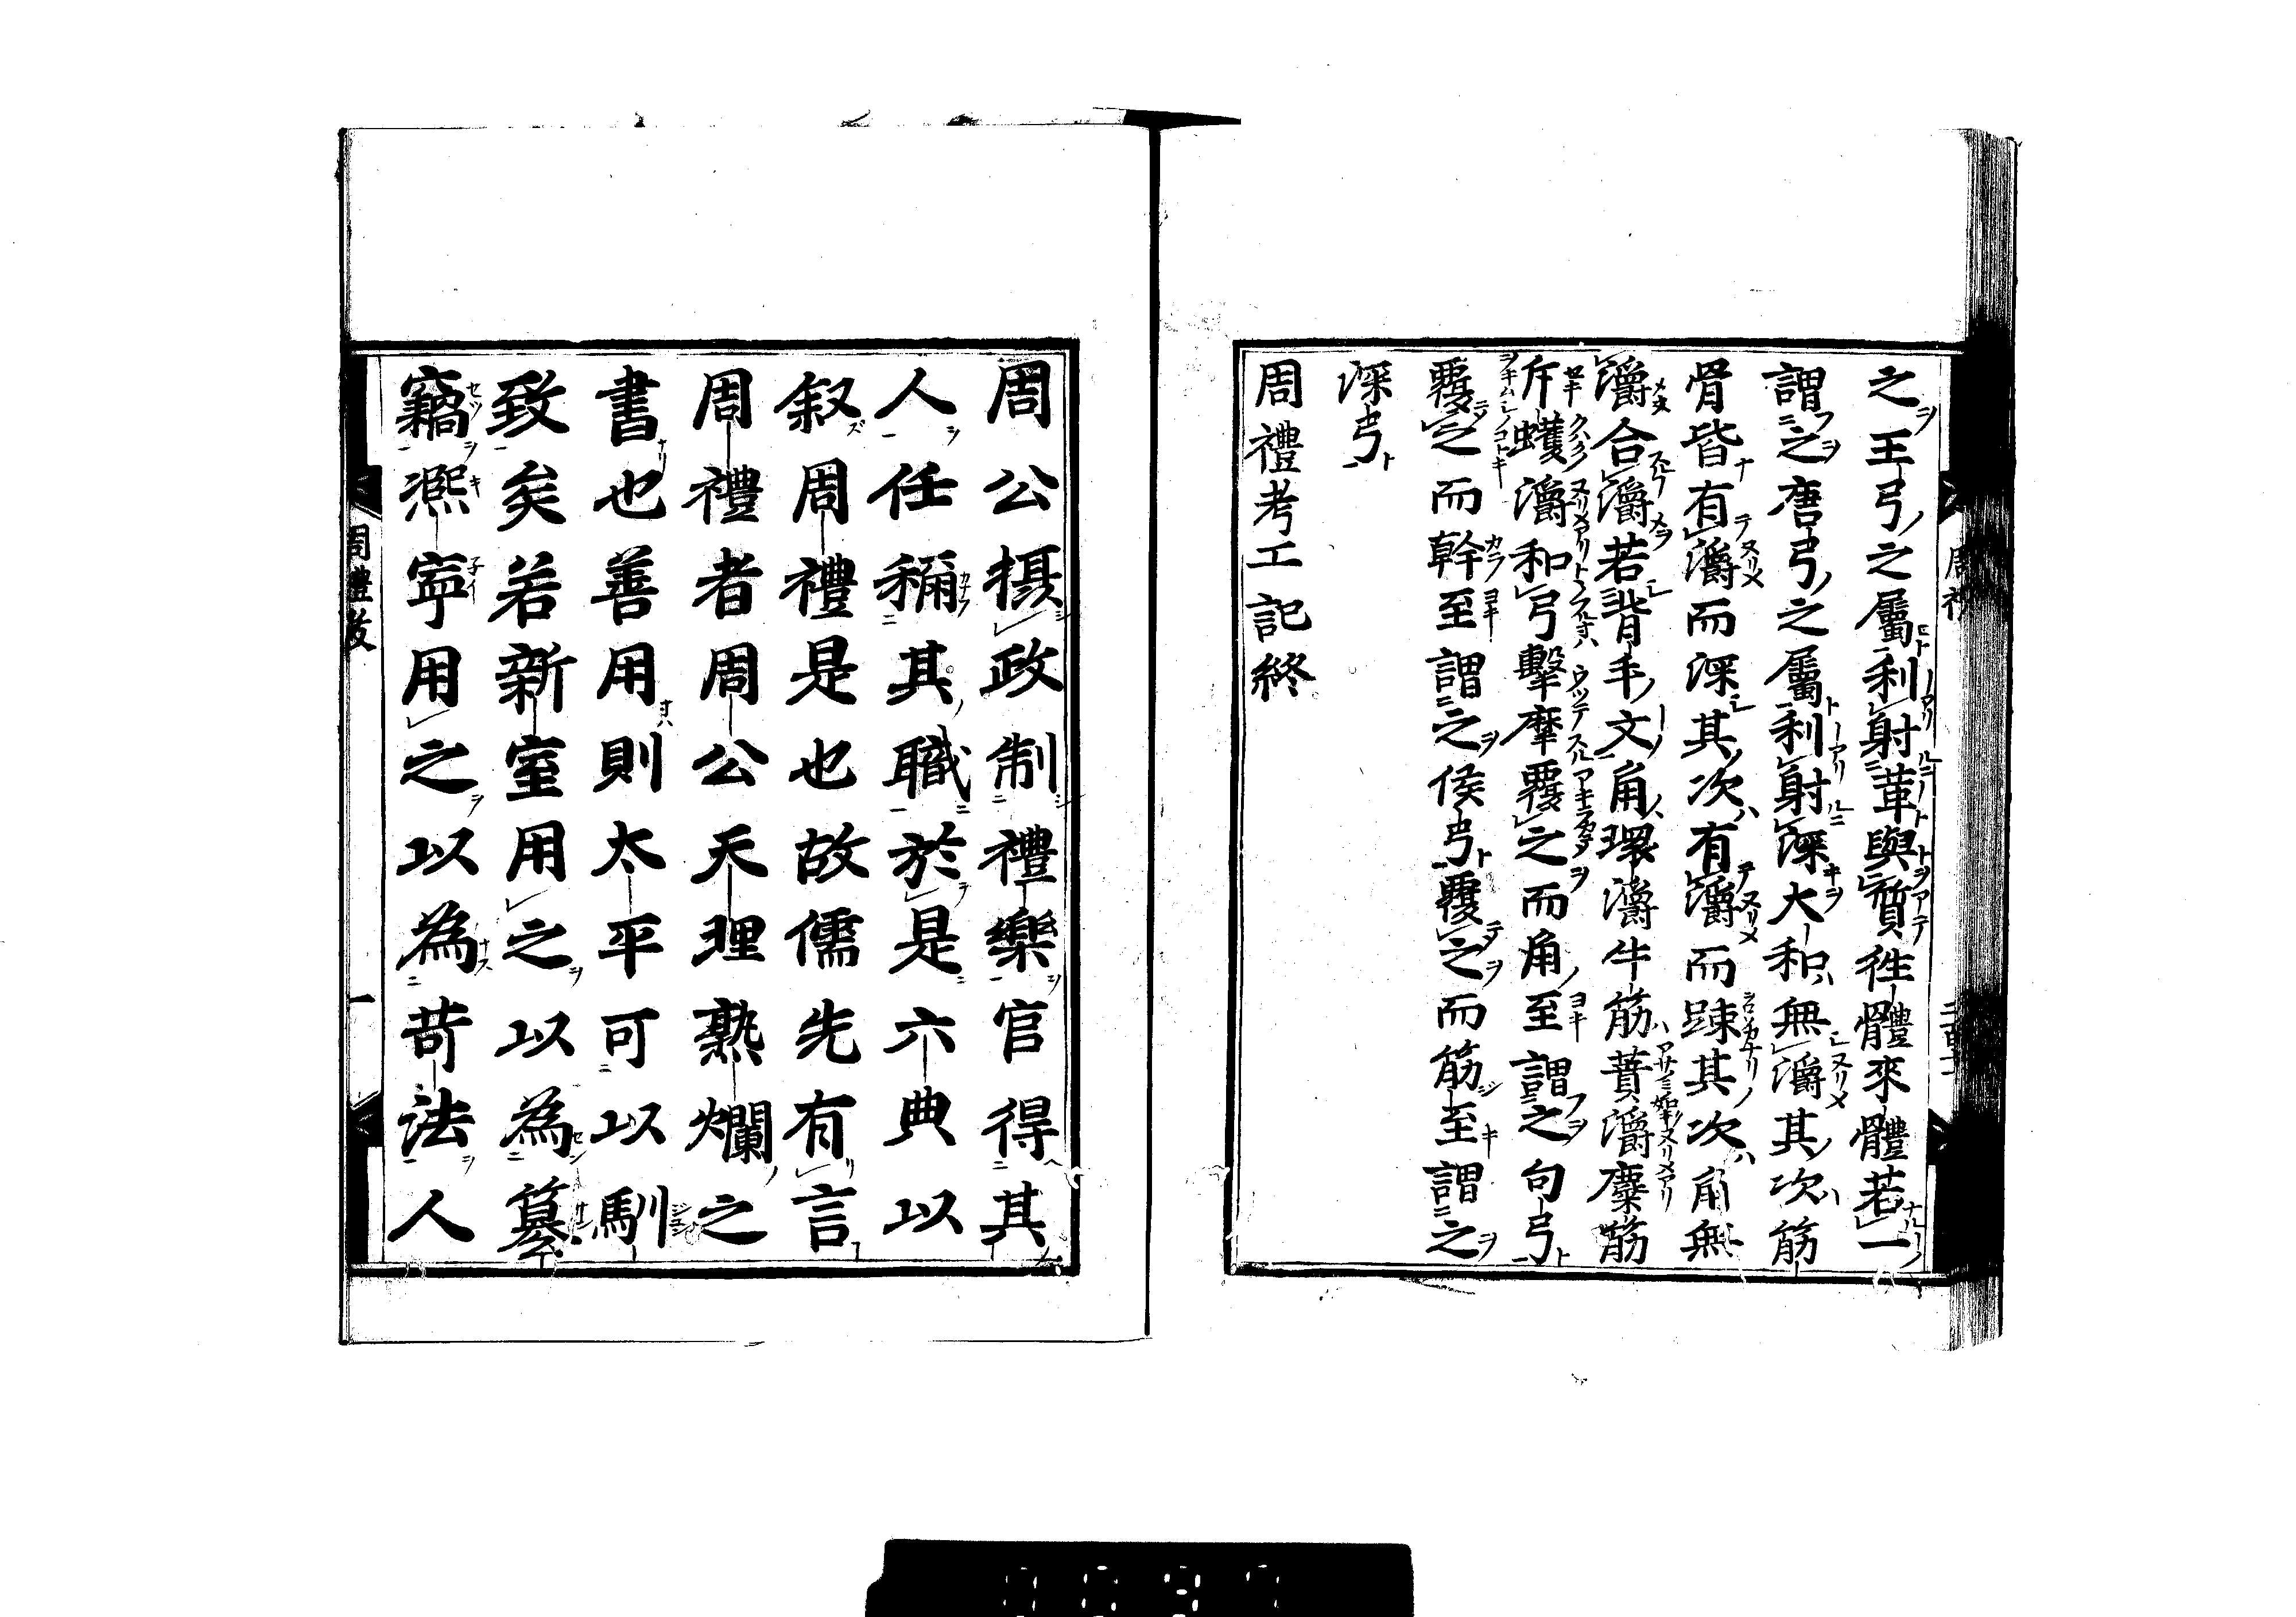 之王弓之屬利射革與質徃體來體若一
謂之唐弓之屬利射深大和無灂其次筋
骨皆有灂而深其次有灂而踈其次角無
灂合灂若背手文角環灂牛筋蕡灂麋筋
斥蠖灂和弓擊摩覆之而角至謂之句弓
覆之而幹至謂之侯弓覆之而筋至謂之
深弓
周禮考工記終
周公摂政制禮樂官得其
人任稱其職於是六典以
叙周禮是也故儒先有言
周禮者周公天理熟爛之
書也善用則太平可以馴
致矣若新室用之以為篡
竊凞寧用之以為苛法人
周禮跋
一